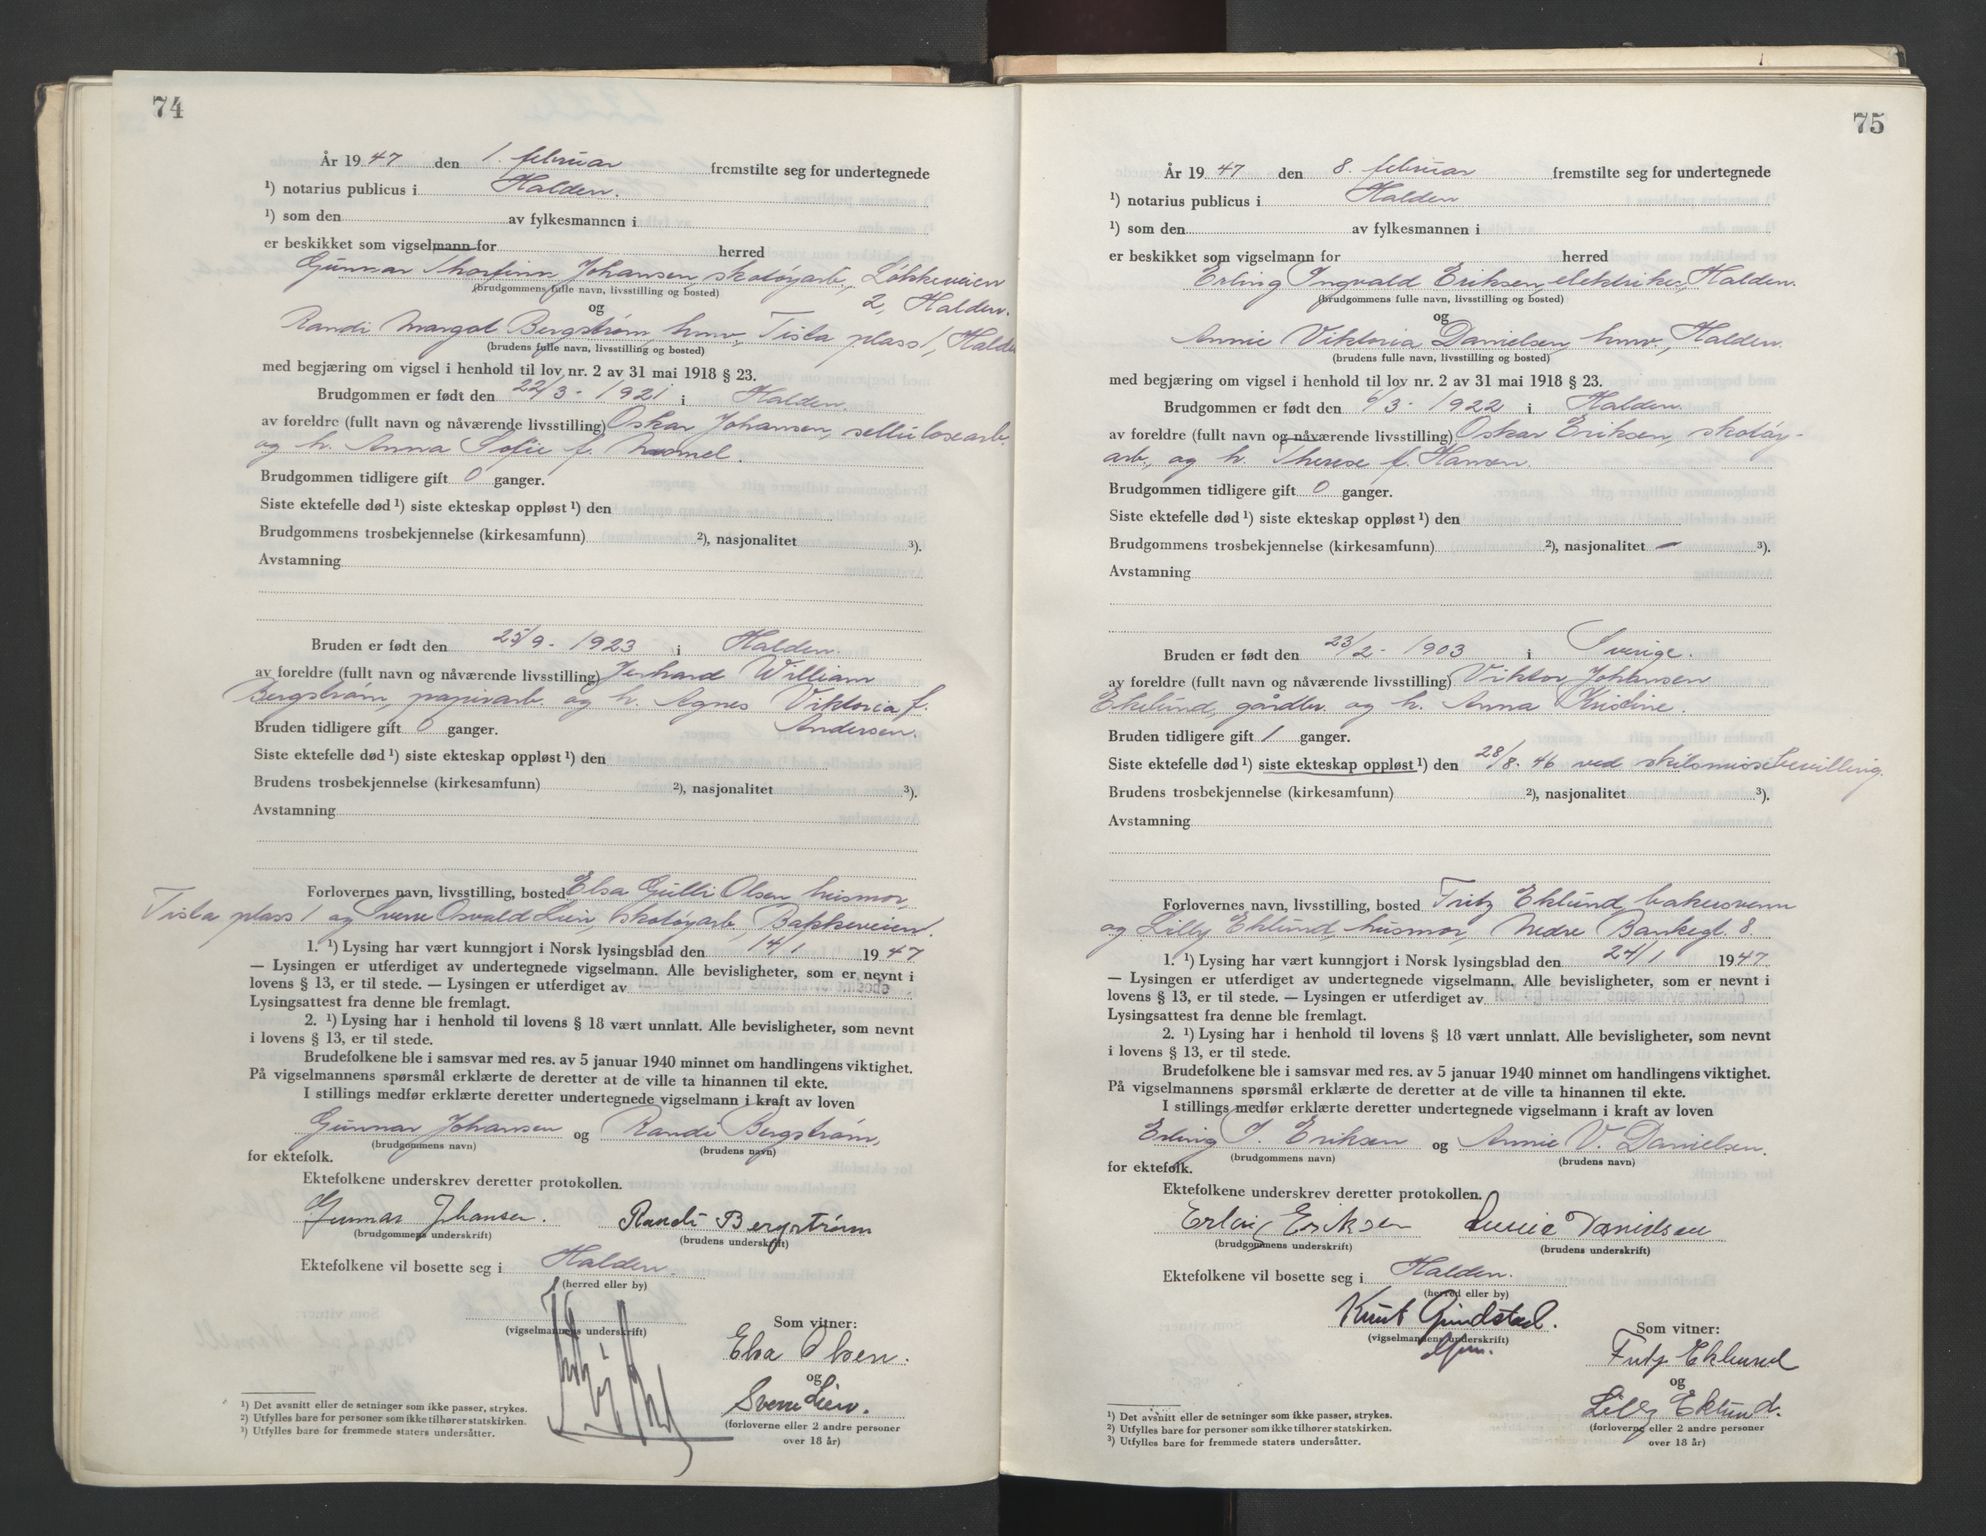 74
År 1947 den 1. februar fremstilte seg for undertegnede
¹) notarius publicus i Halden.
¹) som den av fylkesmannen i
er beskikket som vigselmann for herred
Gunnar Thorfinn Johansen, skotøyarb., Løkkeveien
(brudgommens fulle navn, livsstilling og bosted)
2, Halden.
og
Randi Margot Bergstrøm, hmv., Tista plass 1, Halden
(brudens fulle navn, livsstilling og bosted)
med begjæring om vigsel i henhold til lov nr. 2 av 31 mai 1918 § 23.
Brudgommen er født den 22/3 - 1921 i Halden.
av foreldre (fullt navn og nåværende livsstilling) Oskar Johansen, sellulosearb.
og h. Anna Sofie f.
Brudgommen tidligere gift 0 ganger.
Siste ektefelle død ¹) siste ekteskap oppløst ¹) den
Brudgommens trosbekjennelse (kirkesamfunn) ²), nasjonalitet ³).
Avstamning
Bruden er født den 25/9 - 1923 i Halden.
av foreldre (fullt navn og nåværende livsstilling) Jerhard William
Bergstrøm, papirarb. og h. Agnes Viktoria f.
Bruden tidligere gift 0 ganger. Andersen.
Siste ektefelle død ¹) siste ekteskap oppløst ¹) den
Brudens trosbekjennelse (kirkesamfunn) ²), nasjonalitet ³).
Avstamning
Forlovernes navn, livsstilling, bosted Elsa Gulli Olsen husmor,
Tista plass 1 og Sverre Osvald Lien, skotøyarb., Bakkeveien.
1. ¹) Lysing har vært kunngjort i Norsk lysingsblad den 14/1 1947
— Lysingen er utferdiget av undertegnede vigselmann. Alle bevisligheter, som er nevnt i
lovens § 13, er til stede. — Lysingen er utferdiget av
Lysingsattest fra denne ble fremlagt.
2. ¹) Lysing har i henhold til lovens § 18 vært unnlatt. Alle bevisligheter, som nevnt
i lovens § 13, er til stede.
Brudefolkene ble i samsvar med res. av 5 januar 1940 minnet om handlingens viktighet.
På vigselmannens spørsmål erklærte de deretter at de ville ta hinannen til ekte.
I stillings medfør erklærte deretter undertegnede vigselmann i kraft av loven
Gunnar Johansen og Randi Bergstrøm,
(brudgommens navn) (brudens navn)
for ektefolk.
Ektefolkene underskrev deretter protokollen.
Gunnar Johansen. Randi Bergstrøm
(brudgommens underskrift) (brudens underskrift)
Ektefolkene vil bosette seg i Halden.
(herred eller by)
(vigselmannens underskrift)
Som vitner:
Elsa Olsen.
og
Sverre Lien.
(forloverne eller 2 andre personer
over 18 år)
¹) Det avsnitt eller de setninger som ikke passer, strykes.
²) Utfylles bare for personer som ikke tilhører statskirken.
³) Utfylles bare for fremmede staters undersåtter.
75
År 1947 den 8. februar fremstilte seg for undertegnede
¹) notarius publicus i Halden
¹) som den av fylkesmannen i
er beskikket som vigselmann for herred
Erling Ingvald Eriksen, elektriker, Halden.
(brudgommens fulle navn, livsstilling og bosted)
og
Annie Viktoria Danielsen, hmv., Halden.
(brudens fulle navn, livsstilling og bosted)
med begjæring om vigsel i henhold til lov nr. 2 av 31 mai 1918 § 23.
Brudgommen er født den 6/3 - 1922 i Halden.
av foreldre (fullt navn og nåværende livsstilling) Oskar Eriksen, skotøy-
arb., og h. Therese f. Hansen.
Brudgommen tidligere gift 0 ganger.
Siste ektefelle død ¹) siste ekteskap oppløst ¹) den
Brudgommens trosbekjennelse (kirkesamfunn) ²), nasjonalitet – ³).
Avstamning
Bruden er født den 23/2 - 1903 i Sverige.
av foreldre (fullt navn og nåværende livsstilling) Viktor Johansen
Ekelund, gårdbr. og h. Anna Kristine.
Bruden tidligere gift 1 ganger.
Siste ektefelle død ¹) siste ekteskap oppløst ¹) den 28/8 - 46 ved skilsmissebevilling.
Brudens trosbekjennelse (kirkesamfunn) ²), nasjonalitet ³).
Avstamning
Forlovernes navn, livsstilling, bosted Fritz Eklund, bakersvenn
og Lilly Eklund, husmor, Nedre Bankegt. 8.
1. ¹) Lysing har vært kunngjort i Norsk lysingsblad den 24/1 1947
— Lysingen er utferdiget av undertegnede vigselmann. Alle bevisligheter, som er nevnt i
lovens § 13, er til stede. — Lysingen er utferdiget av
Lysingsattest fra denne ble fremlagt.
2. ¹) Lysing har i henhold til lovens § 18 vært unnlatt. Alle bevisligheter, som nevnt
i lovens § 13, er til stede.
Brudefolkene ble i samsvar med res. av 5 januar 1940 minnet om handlingens viktighet.
På vigselmannens spørsmål erklærte de deretter at de ville ta hinannen til ekte.
I stillings medfør erklærte deretter undertegnede vigselmann i kraft av loven
Erling I. Eriksen og Annie V. Danielsen.
(brudgommens navn) (brudens navn)
for ektefolk.
Ektefolkene underskrev deretter protokollen.
Erling Eriksen Annie Danielsen
(brudgommens underskrift) (brudens underskrift)
Ektefolkene vil bosette seg i Halden.
(herred eller by)
Knut Grindstad.
(vigselmannens underskrift)
Som vitner:
Fritz Eklund
og
Lilly Eklund.
(forloverne eller 2 andre personer
over 18 år)
¹) Det avsnitt eller de setninger som ikke passer, strykes.
²) Utfylles bare for personer som ikke tilhører statskirken.
³) Utfylles bare for fremmede staters undersåtter.